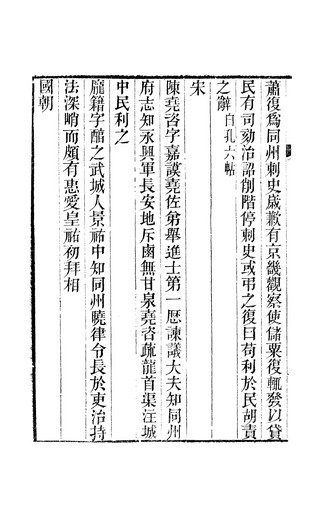 蕭復爲同州刺史歲歉有京畿觀察使儲粟復輒發以貸
民有司劾治詔削階停刺史或弔之復曰苟利於民胡責
之辭白孔六帖
宋
陳堯咨字嘉謨堯佐弟舉進士第一歷諫議大夫知同州
府志知永興軍長安地斥鹵無甘泉堯咨疏龍首渠汪城
中民利之
龐籍字醕之武城人景祐中知同州曉律令長於吏治持
法深峭而頗有惠愛皇祐初拜相
國朝